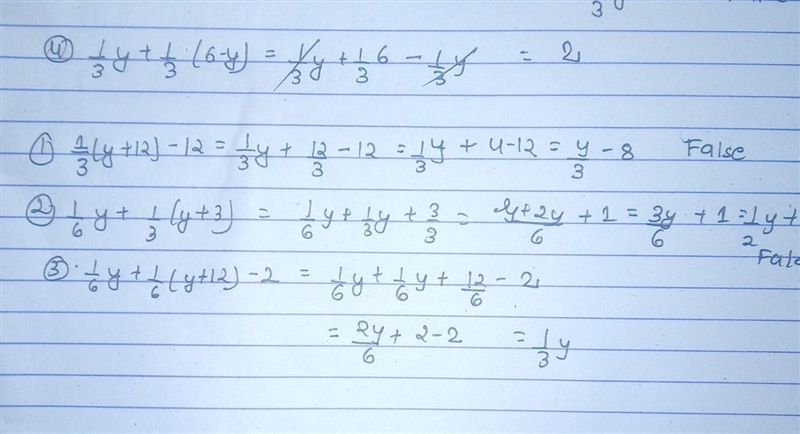 3
④ 1/3 y + 1/3 · (6-y) = 1/3 y + 1/3 6 - 1/3 y = 2
① 1/3 (y+12) - 12 = 1/3 y + 12/3 - 12 = 1/3 y + 4-12 = y/3 - 8 False
② 1/6 y + 1/3 (y+3) = 1/6 y + 1/3 y + 3/3 = y+2y/6 + 1 = 3y/6 + 1 = 1/2 y +
Fals
③ · 1/6 y + 1/6 (y+12) - 2 = 1/6 y + 1/6 y + 12/6 - 2
= 2y/6 + 2-2 = 1/3 y